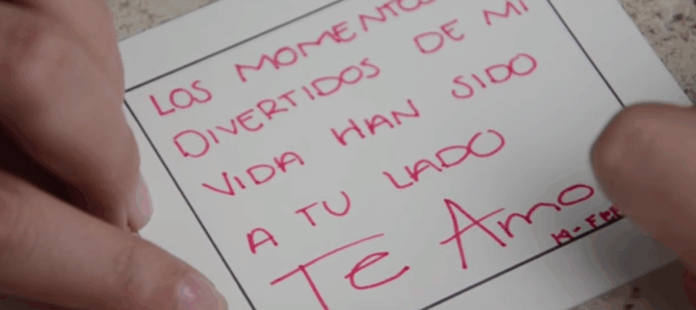 LOS MOMENTOS
DIVERTIDOS DE MI
VIDA HAN SIDO
A TU LADO
Te Amo